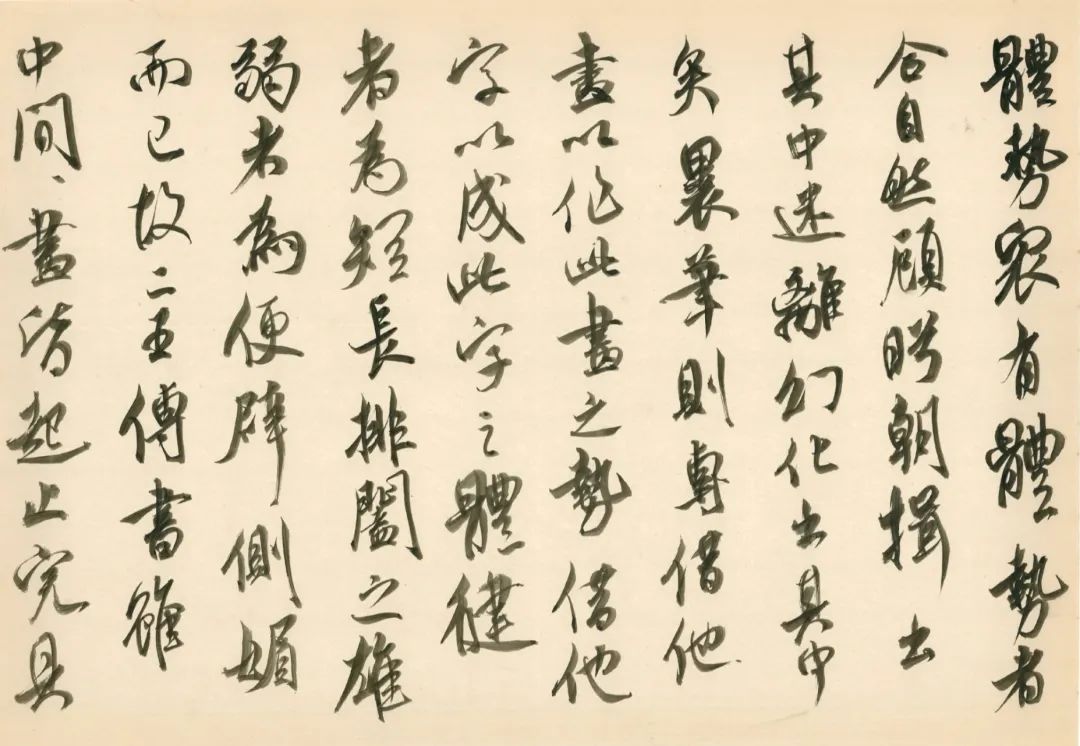 體勢眾有體勢者
合自然顧盼朝揖出
其中迷離幻化出其中
矣裹筆則專借他
畫以作此畫之勢借他
字以成此字之體健
者為短長排闔之雄
弱者為便辟側媚
而已故二王傳書雖
中間、畫皆起止完具